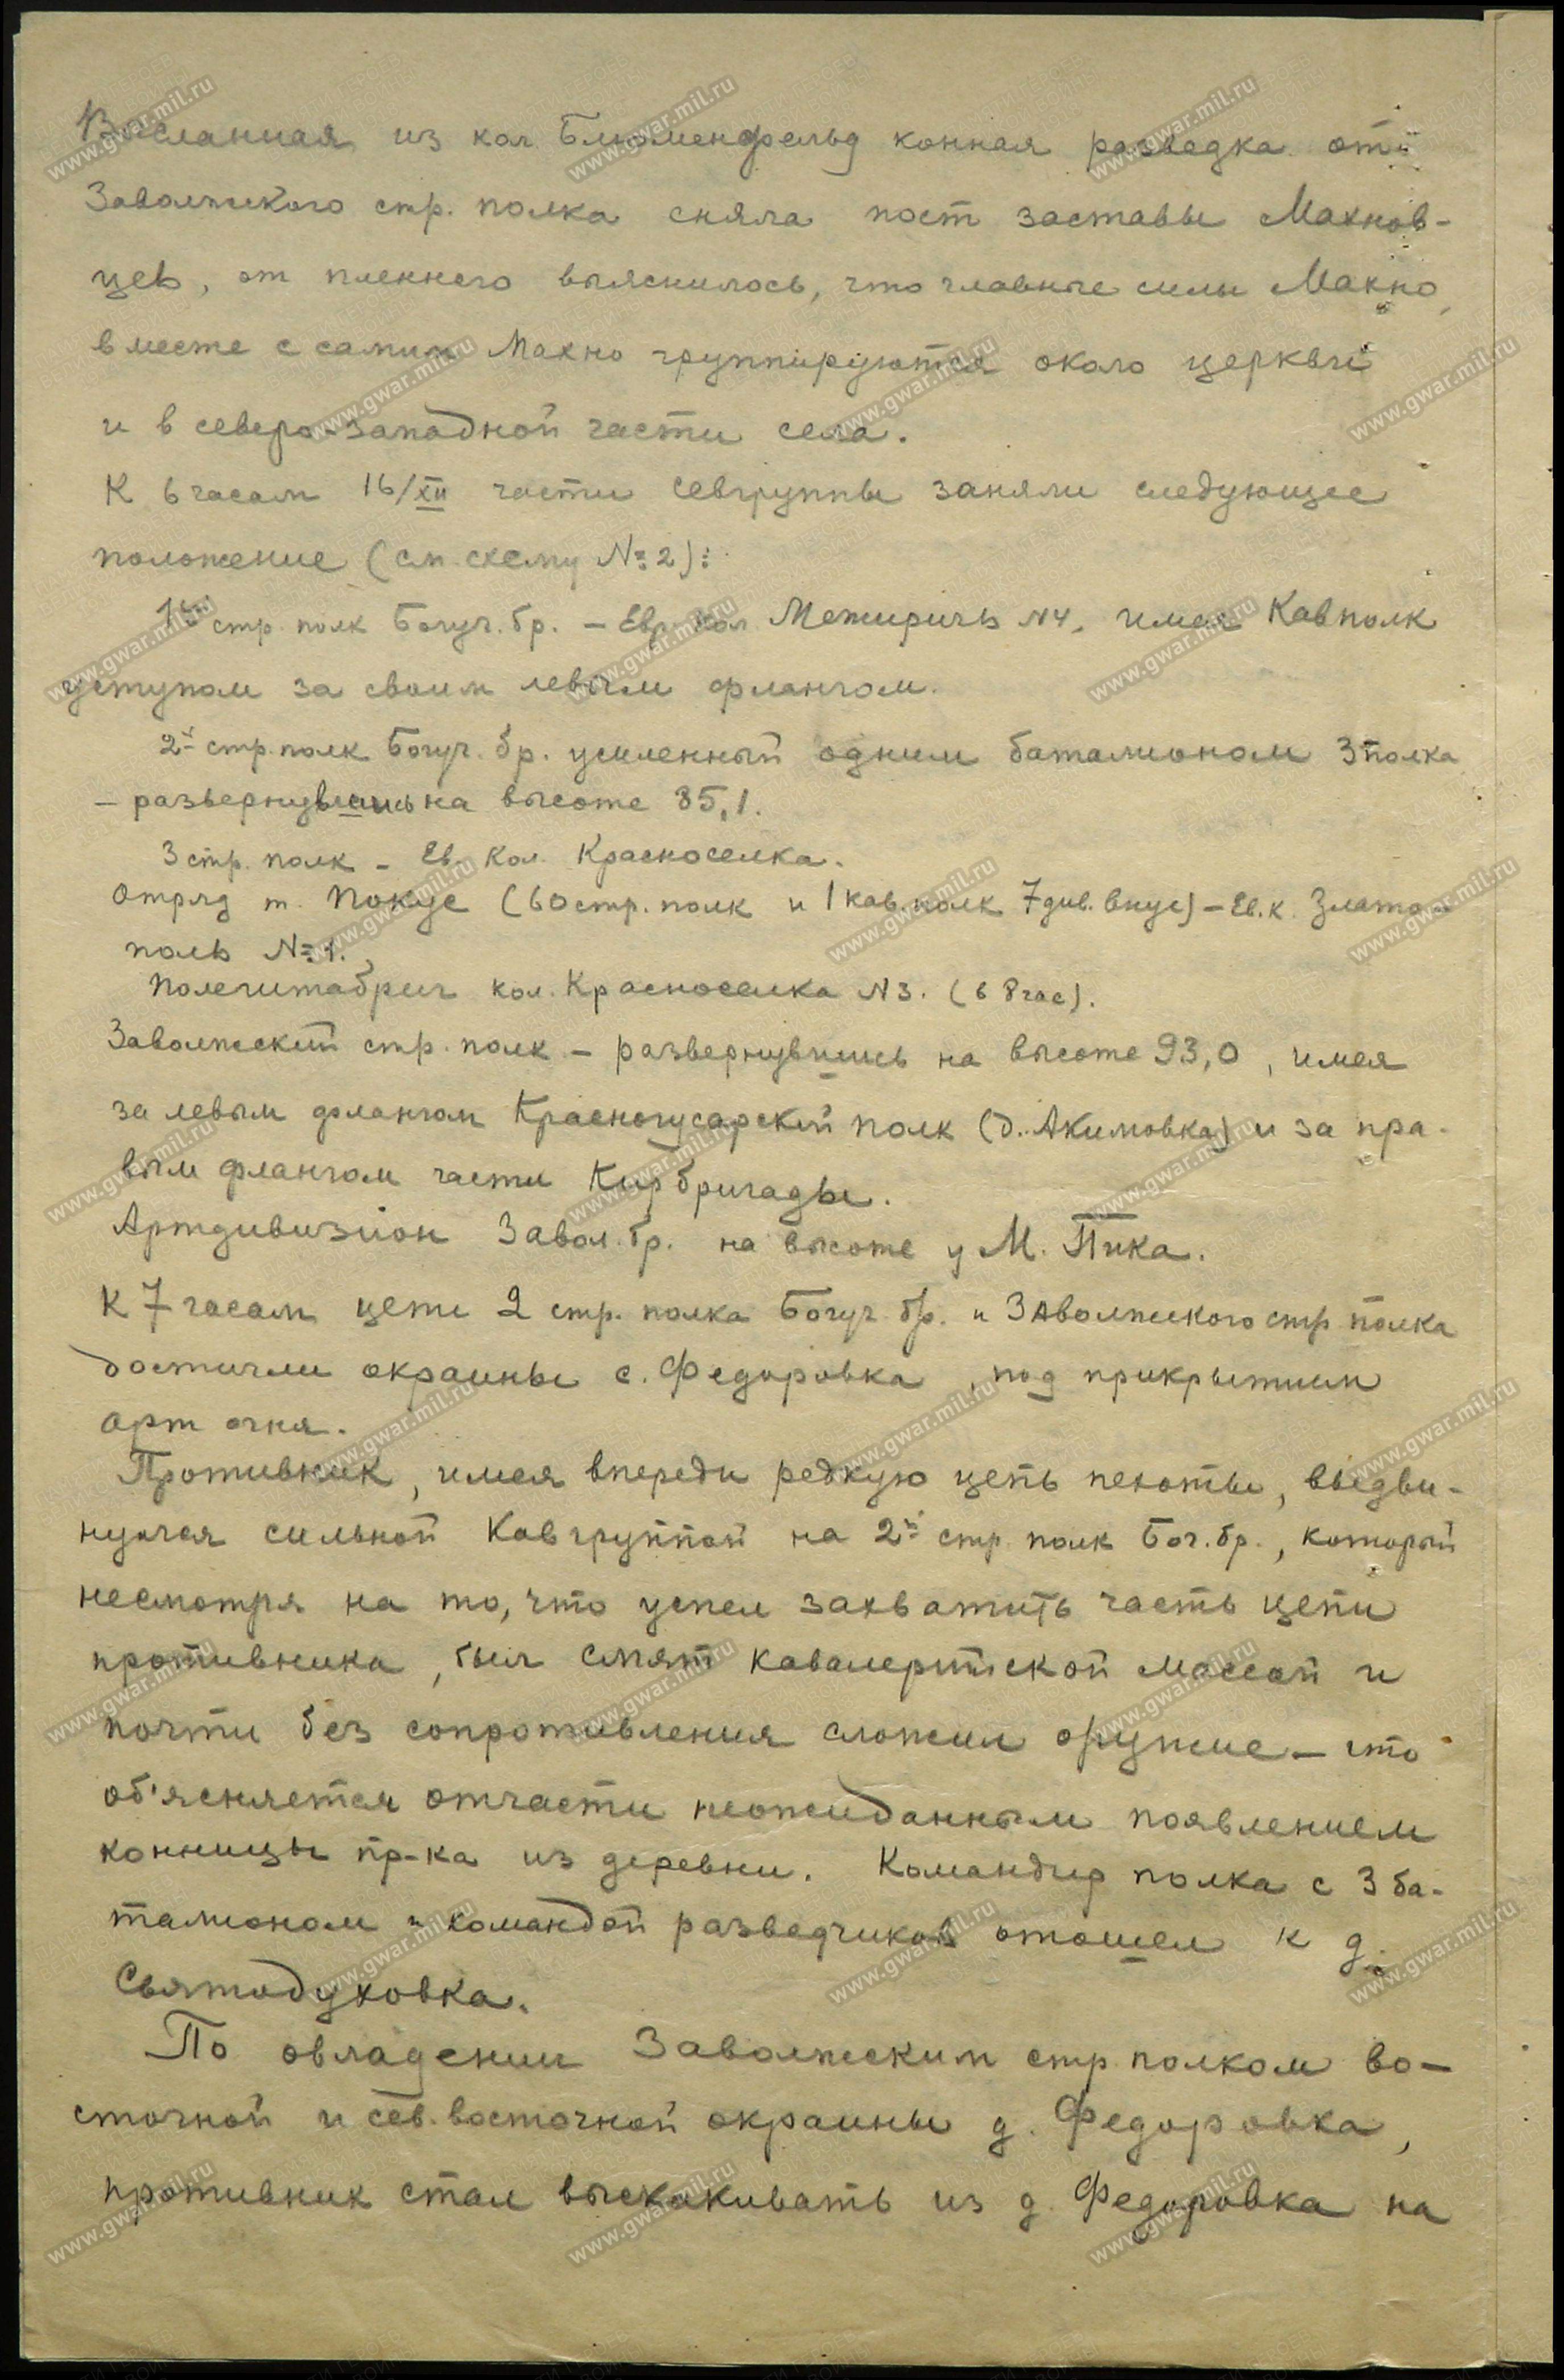 Высланная из кол. Блюменфельд конная разведка от
Заволжского стр. полка сняла пост заставы Махнов-
цев, от пленного выяснилось, что главные силы Махно,
вместе с самим Махно группируются около церкви
и в северо-западной части села.
К 6 часам 16/XII части Севгруппы заняли следующее
положение (см. схему №2):
1й стр. полк Богуч. бр. – Евр. кол. Межиричь N4, имея Кавполк
уступом за своим левым флангом.
2й стр. полк Богуч. бр. усиленный одним баталионом 3 полка
– развернувшись на высоте 85,1.
3 стр. полк – Ев. Кол. Красноселка.
Отряд т. Покус (60 стр. полк и 1 кав. полк 7 див. Внус) – Ев. к. Златоо-
поль №1.
Полештабриг кол. Красноселка N3. (в 8 час).
Заволжский стр. полк – развернувшись на высоте 93,0, имея
за левым флангом Красногусарский полк (д. Акимовка) и за пра-
вым флангом части Кирбригады.
Артдивизион Завол. бр. на высоте у М. Пика.
К 7 часам цепи 2 стр. полка Богуч. бр. и Заволжского стр полка
достигли окраины с. Федоровка, под прикрытием
арт огня.
Противник, имея впереди редкую цепь пехоты, выдви-
нулся сильной Кавгруппой на 2й стр. полк Бог. бр., который
несмотря на то, что успел захватить часть цепи
противника, был смят кавалерийской массой и
почти без сопротивления сложил оружие – что
об'ясняется отчасти неожиданным появлением
конницы пр-ка из деревни. Командир полка с 3 ба-
талионом и командой разведчиков отошел к д.
Святодуховка.
По овладении Заволжским стр. полком во-
сточной и сев. восточной окраины д. Федоровка,
противник стал выскакивать из д. Федоровка на
www.gwar.mil.ru